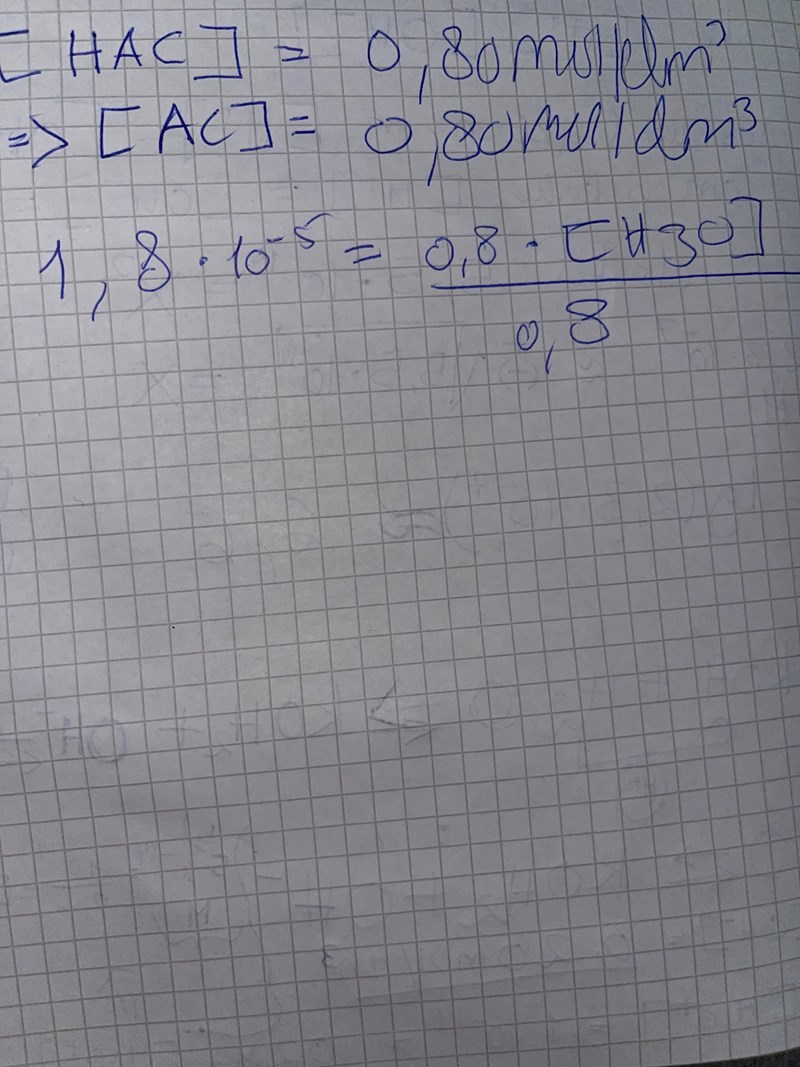 [HAC] = 0,80mol/dm³
=> [AC] = 0,80mol/dm³
1,8 · 10⁻⁵ = 0,8 · [H3O]
0,8